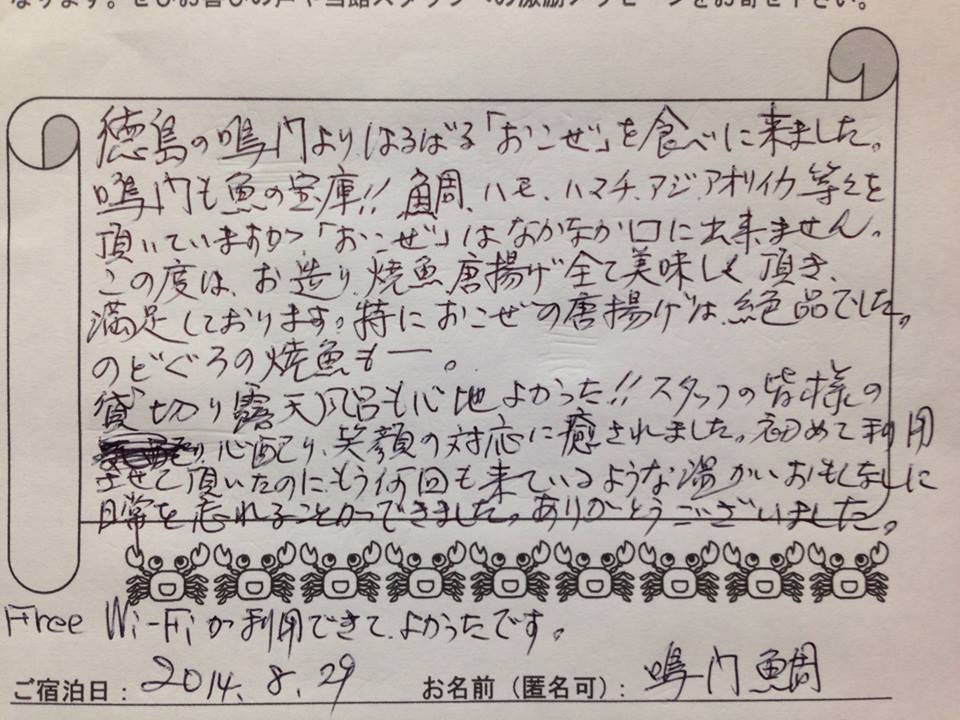 なります。ぜひお喜びの声や当館スタッフへの激励メッセージをお寄せ下さい。
徳島の鳴門よりはるばる「おこぜ」を食べに来ました。
鳴門も魚の宝庫!! 鯛、ハモ、ハマチ、アジ、アオリイカ等々を
頂いていますが「おこぜ」はなかなか口に出来ません。
この度は、お造り、焼魚、唐揚げ全て美味しく頂き、
満足しております。特におこぜの唐揚げは、絶品でした。
のどぐろの焼魚も―。
貸切り露天風呂も心地よかった!! スタッフの皆様の
心配り、笑顔の対応に癒されました。初めて利用
させて頂いたのに、もう何回も来ているような温かいおもてなしに
日常を忘れることができました。ありがとうございました。
Free Wi-Fiが利用できて、よかったです。
ご宿泊日：2014.8.29 お名前（匿名可）：鳴門鯛